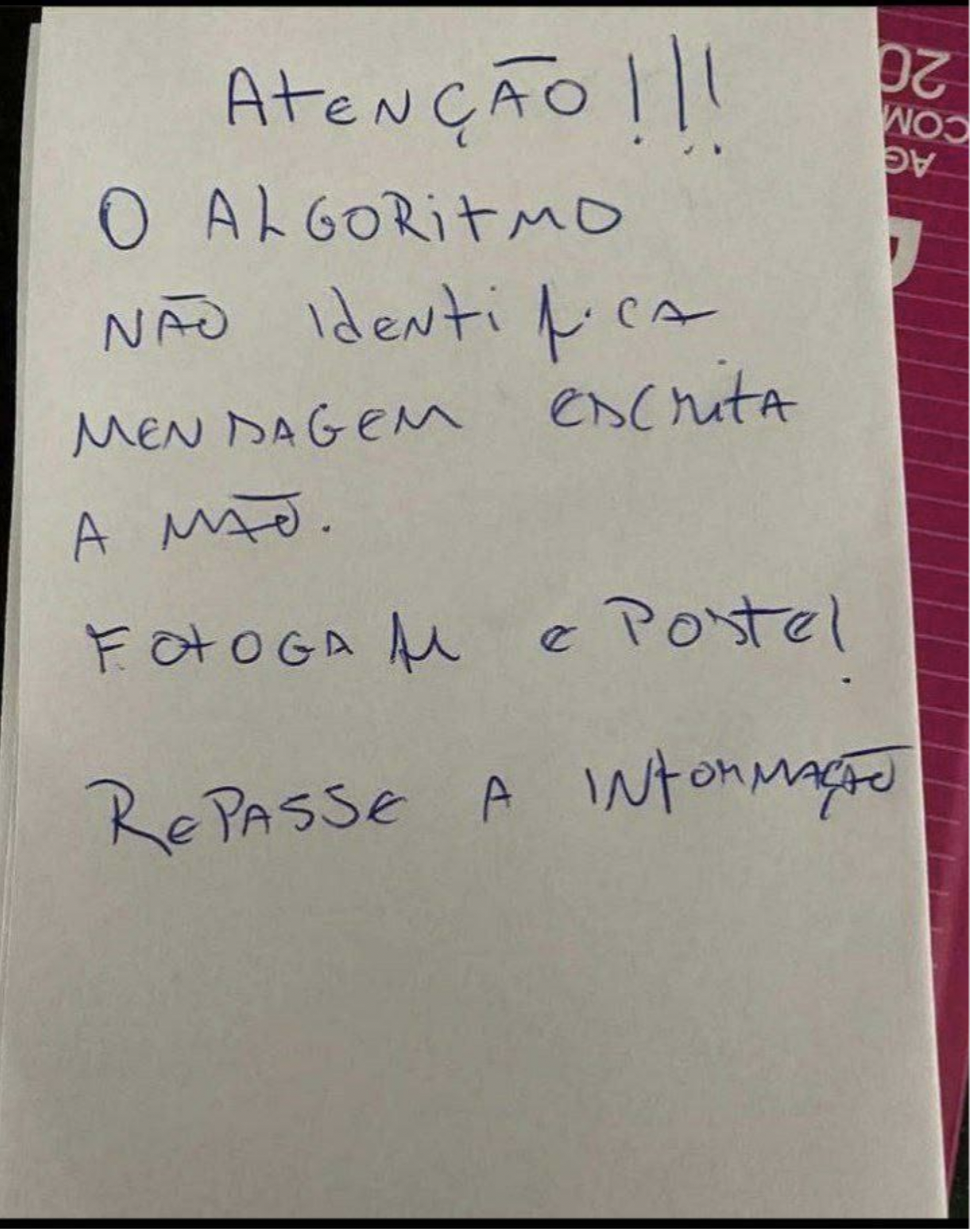 Atenção!!!
O ALGORitmo
NÃO identifica
MENSAGEM escrita
A MÃO.
FOtOGAfe e Poste!
RePASSE A INfoRMAÇÃO
20
COM
AG